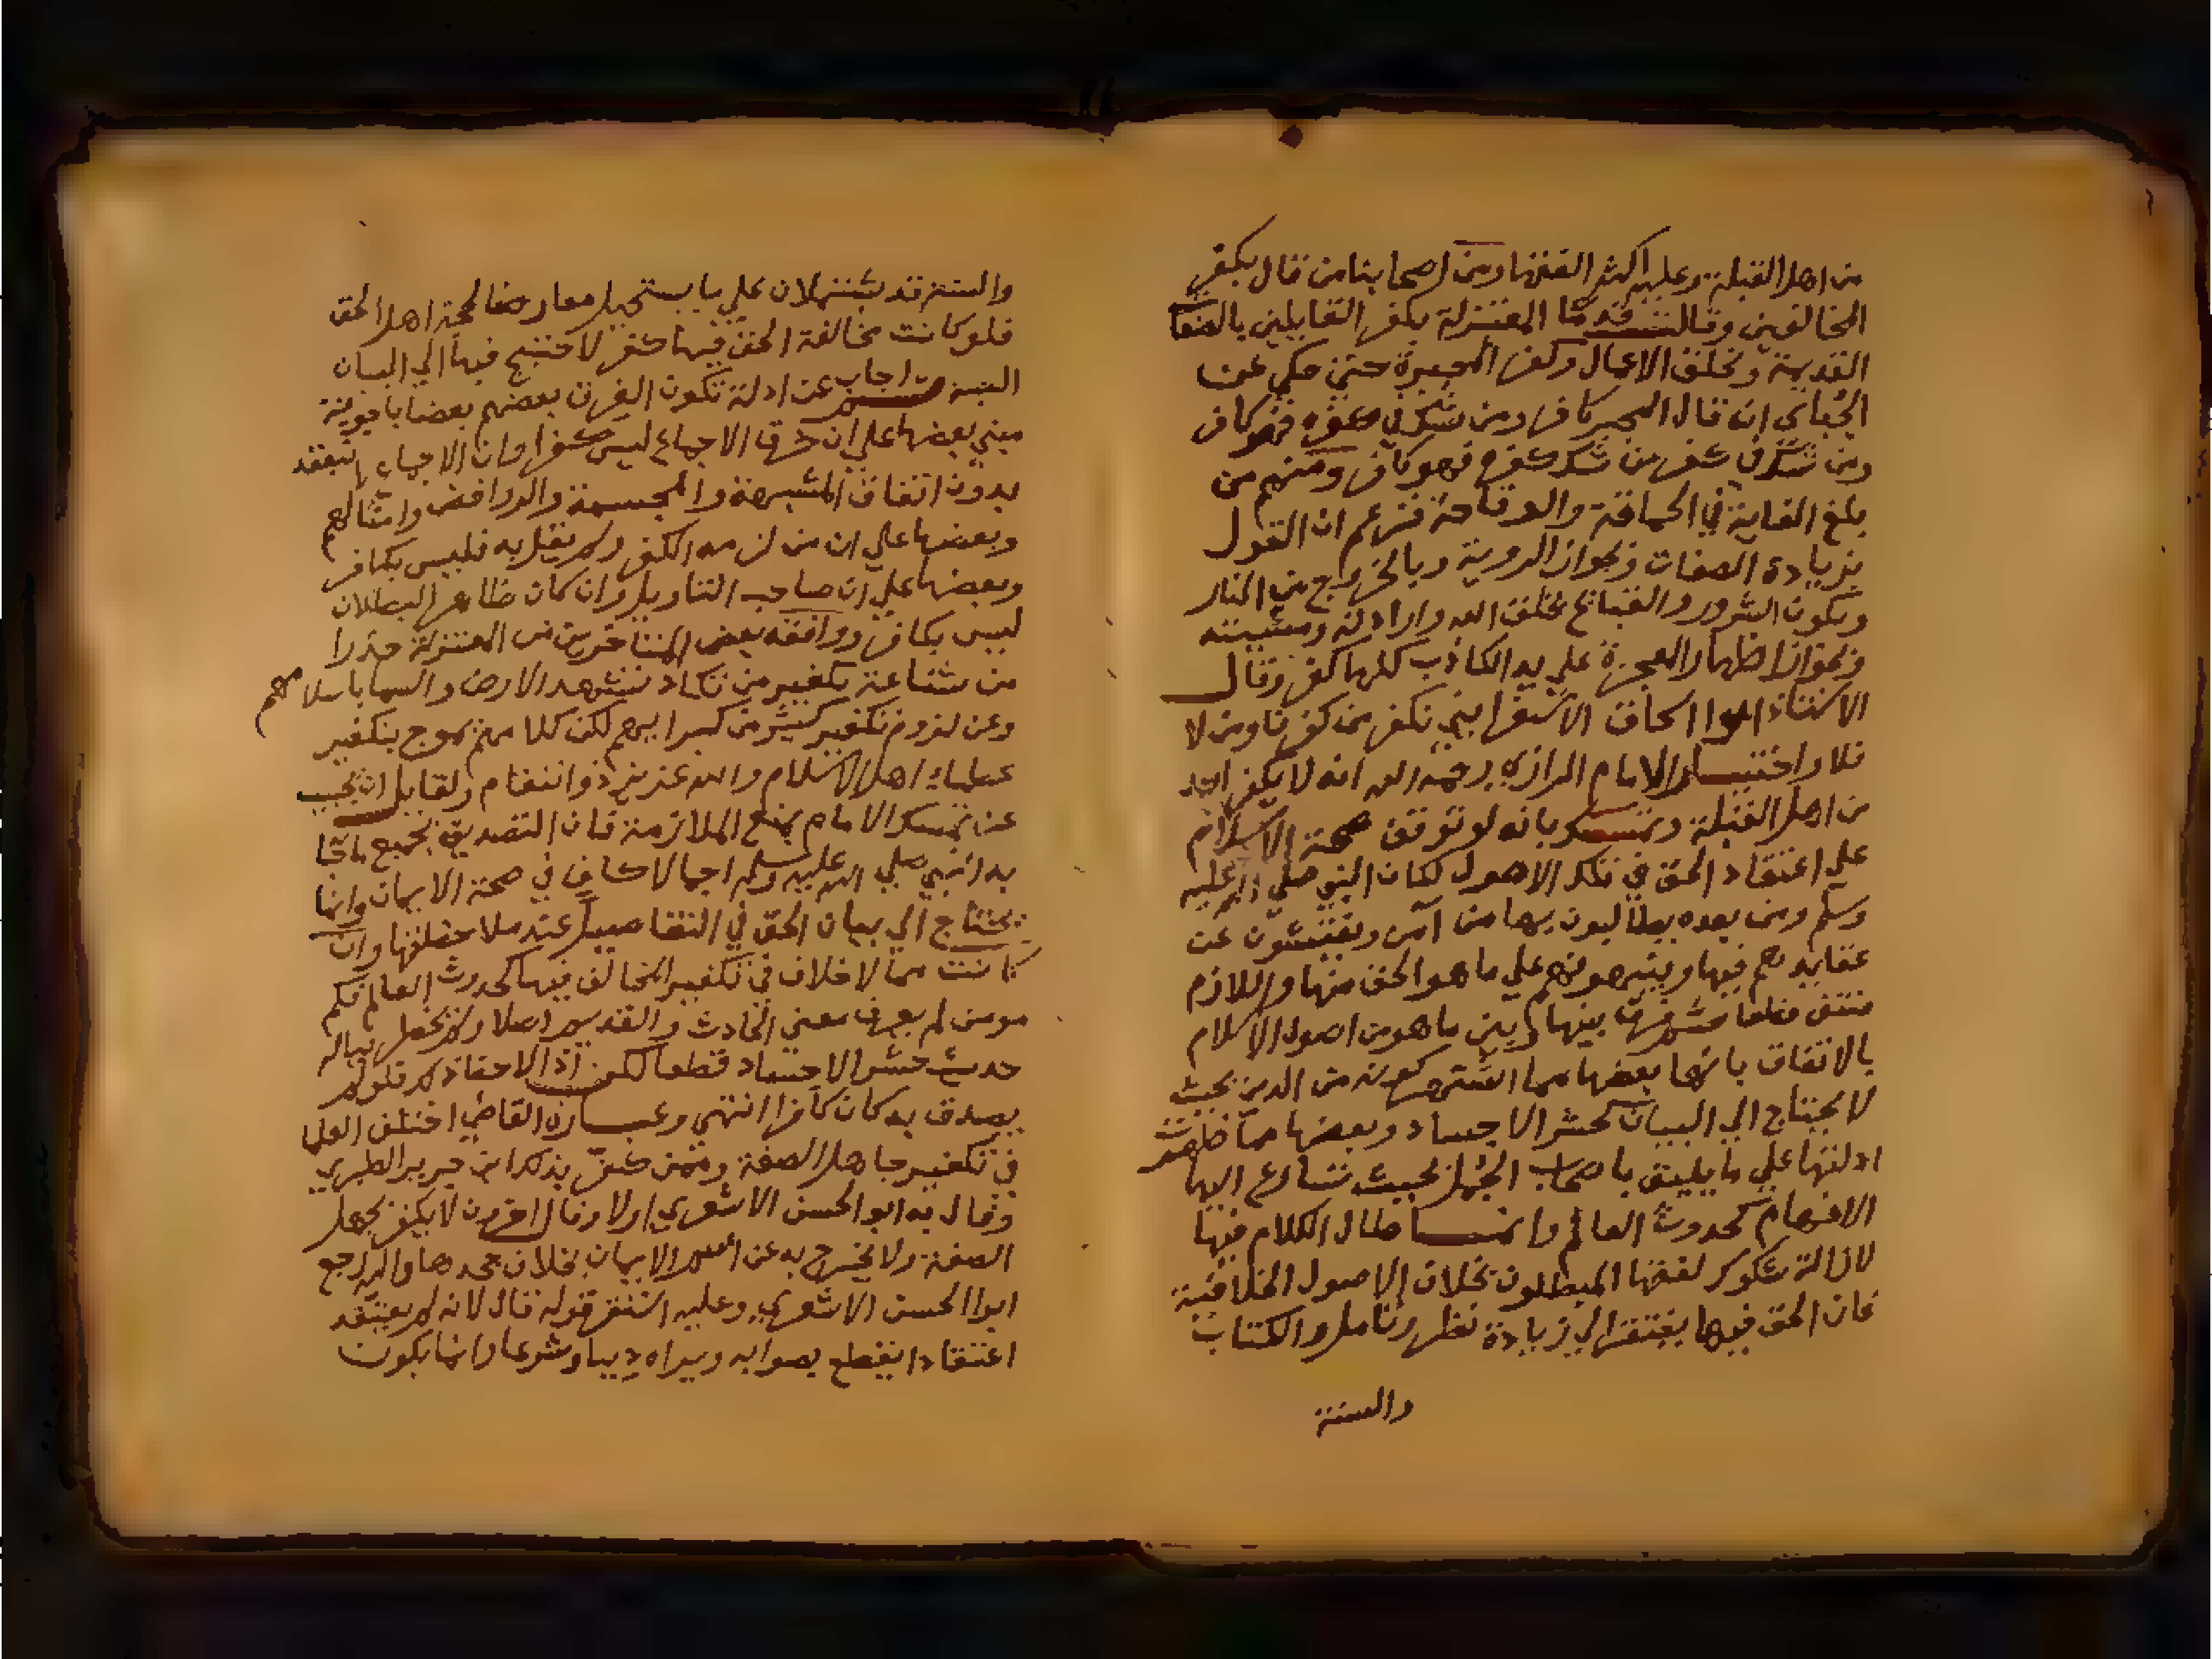 من اهل القبلة وعليه اكثر الفقها ومن اصحابنا من قال بكفر
المخالفين وقالت قدما المعتزلة بكفر القايلين بالصفا
القديمة وبخلق الاعمال وكفر المجبرة حتى حكي عن
الجباي انه قال المجبر كافر ومن شك في كفره فهو كافر
ومن شك في كفر من شك كفره فهو كافر ومنهم من
بلغ الغاية في الحماقة والوقاحة فزعم ان القول
بزيادة الصفات وبجواز الروية وبالخروج من النار
وبكون الشرور والقبائح بخلق الله وارادته ومشيئته
وبجواز اظهار المعجزة على يد الكاذب كلها كفر وقال
الاستاذ ابوا اسحاق الاسفرايني نكفر من كفرنا ومن لا
فلا واختيار الامام الرازي رحمه الله انه لا يكفر احد
من اهل القبلة وتمسك بانه لو توقف صحة الاسلام
على اعتقاد الحق في تلك الاصول لكان النبي صلى الله عليه
وسلم ومن بعده يطالبون بها من آمن ويفتشون عن
عقايدهم فيها وينبهونهم على ما هو الحق منها واللازم
منتف قطعا ثم فرق بينها وبين ما هو من اصول الاسلام
بالاتفاق بانها بعضها مما اشتهر كونه من الدين بحيث
لا يحتاج الى البيان كحشر الاجساد وبعضها مما ظهرت
ادلتها على ما يليق باصحاب الجمل بحيث تتسارع اليها
الافهام كحدوث العالم وانما طال الكلام فيها
لازالة شكوك لفقها المبطلون بخلاف الاصول الخلافية
فان الحق فيها يفتقر الى زيادة نظر وتامل والكتاب
والسنة
والسنة قد يشتملان على ما يستحيل معارضا لحجة اهل الحق
فلو كانت مخالفة الحق فيها كفر لاحتيج فيها الى البيان
البتة ثم اجاب عن ادلة تكون الفرق بعضهم بعضا باجوبة
مبني بعضها على ان خرق الاجماع ليس كفرا وان الاجماع لا ينعقد
بدون اتفاق المشبهة والمجسمة والروافض وامثالهم
وبعضها على ان من لزمه الكفر ولم يقل به فليس بكافر
وبعضها على ان صاحب التاويل وان كان ظاهر البطلان
ليس بكافر ووافقه بعض المتاخرين من المعتزلة حذرا
من شناعة تكفير من تكاد تشهد الارض والسما باسلامهم
وعن لزوم تكفير كثير من كبرايهم لكن كلامهم يموج بتكفير
عظماء اهل الاسلام والله عزيز ذو انتقام ولقايل ان يجيب
عن تمسك الامام بمنع الملازمة فان التصديق بجميع ما جا
به النبي صلى الله عليه وسلم اجمالا كاف في صحة الايمان وانما
يحتاج الى بيان الحق في التفاصيل عند ملاحظتها وان
كانت مما لا خلاف في تكفير المخالف فيها كحدوث العالم فكم
مومن لم يعرف معنى الحادث والقديم اصلا ولم يخطر بباله
حديث حشر الاجساد قطعا لكن اذا لاحظ ذلك فلو لم
يصدق به كان كافرا انتهى وعبارة القاضي اختلف العلما
في تكفير جاهل الصفة وممن كفر بذلك ابن جرير الطبري
وقال به ابو الحسن الاشعري اولا وقال اخرون لا يكفر بجهل
الصفة ولا يخرج به عن اسم الايمان بخلاف جحدها واليه رجع
ابوا الحسن الاشعري وعليه استقر قوله قال لانه لم يعتقد
اعتقادا يقطع بصوابه ويراه دينا وشرعا وانما يكون